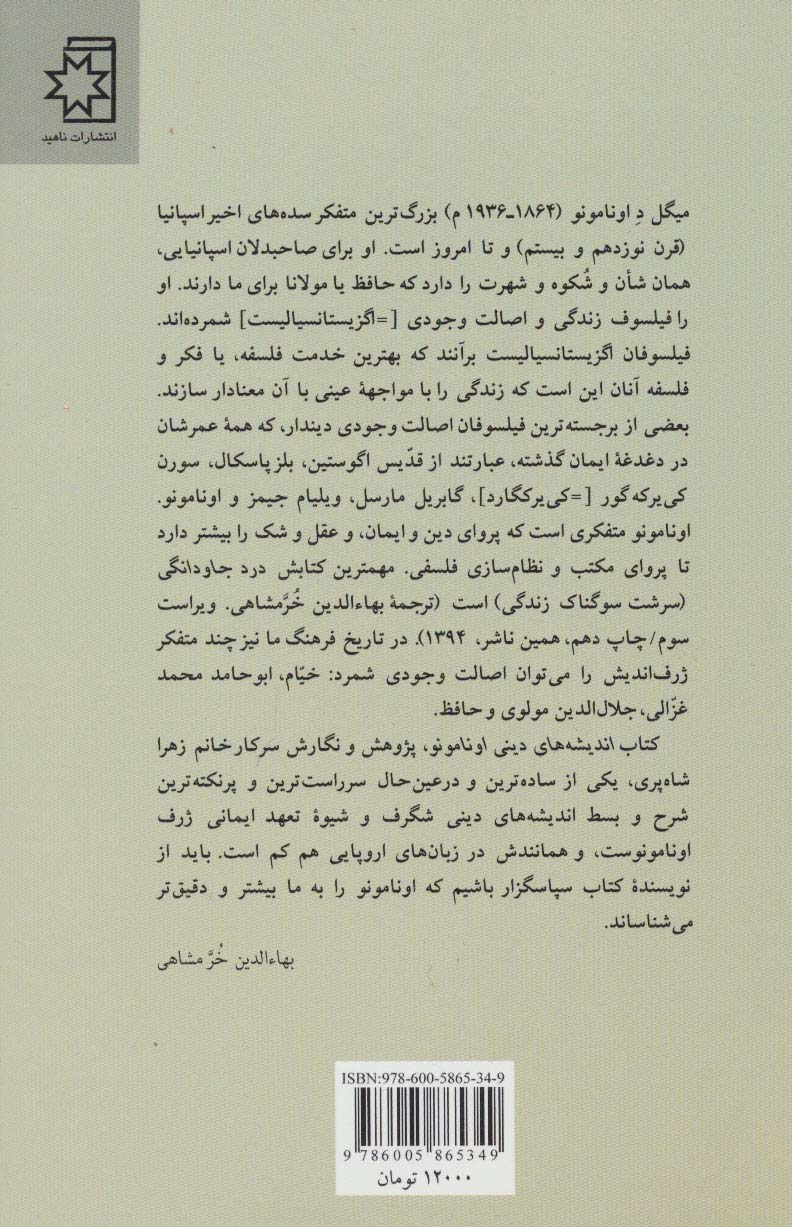 انتشارات ناهید
میگل دِ اونامونو (۱۸۶۴ـ۱۹۳۶ م) بزرگ‌ترین متفکر سده‌های اخیر اسپانیا
(قرن نوزدهم و بیستم) و تا امروز است. او برای صاحبدلان اسپانیایی،
همان شأن و شُکوه و شهرت را دارد که حافظ یا مولانا برای ما دارند. او
را فیلسوف زندگی و اصالت وجودی [=اگزیستانسیالیست] شمرده‌اند.
فیلسوفان اگزیستانسیالیست برآنند که بهترین خدمت فلسفه، یا فکر و
فلسفه آنان این است که زندگی را با مواجههٔ عینی با آن معنادار سازند.
بعضی از برجسته‌ترین فیلسوفان اصالت وجودی دیندار، که همهٔ عمرشان
در دغدغهٔ ایمان گذشته، عبارتند از قدّیس اگوستین، بلز پاسکال، سورن
کی‌یرکه‌گور [=کی‌یرکگارد]، گابریل مارسل، ویلیام جیمز و اونامونو.
اونامونو متفکری است که پروای دین و ایمان، و عقل و شک را بیشتر دارد
تا پروای مکتب و نظام‌سازی فلسفی. مهمترین کتابش درد جاودانگی
(سرشت سوگناک زندگی) است (ترجمهٔ بهاءالدین خُرَّمشاهی. ویراست
سوم/چاپ دهم، همین ناشر، ۱۳۹۴). در تاریخ فرهنگ ما نیز چند متفکر
ژرف‌اندیش را می‌توان اصالت وجودی شمرد: خیّام، ابوحامد محمد
غزّالی، جلال‌الدین مولوی و حافظ.
کتاب اندیشه‌های دینی اونامونو، پژوهش و نگارش سرکار خانم زهرا
شاه‌پری، یکی از ساده‌ترین و درعین‌حال سرراست‌ترین و پرنکته‌ترین
شرح و بسط اندیشه‌های دینی شگرف و شیوهٔ تعهد ایمانی ژرف
اونامونوست، و همانندش در زبان‌های اروپایی هم کم است. باید از
نویسندهٔ کتاب سپاسگزار باشیم که اونامونو را به ما بیشتر و دقیق‌تر
می‌شناساند.
بهاءالدین خُرَّمشاهی
ISBN:978-600-5865-34-9
9 786005 865349
۱۲۰۰۰ تومان